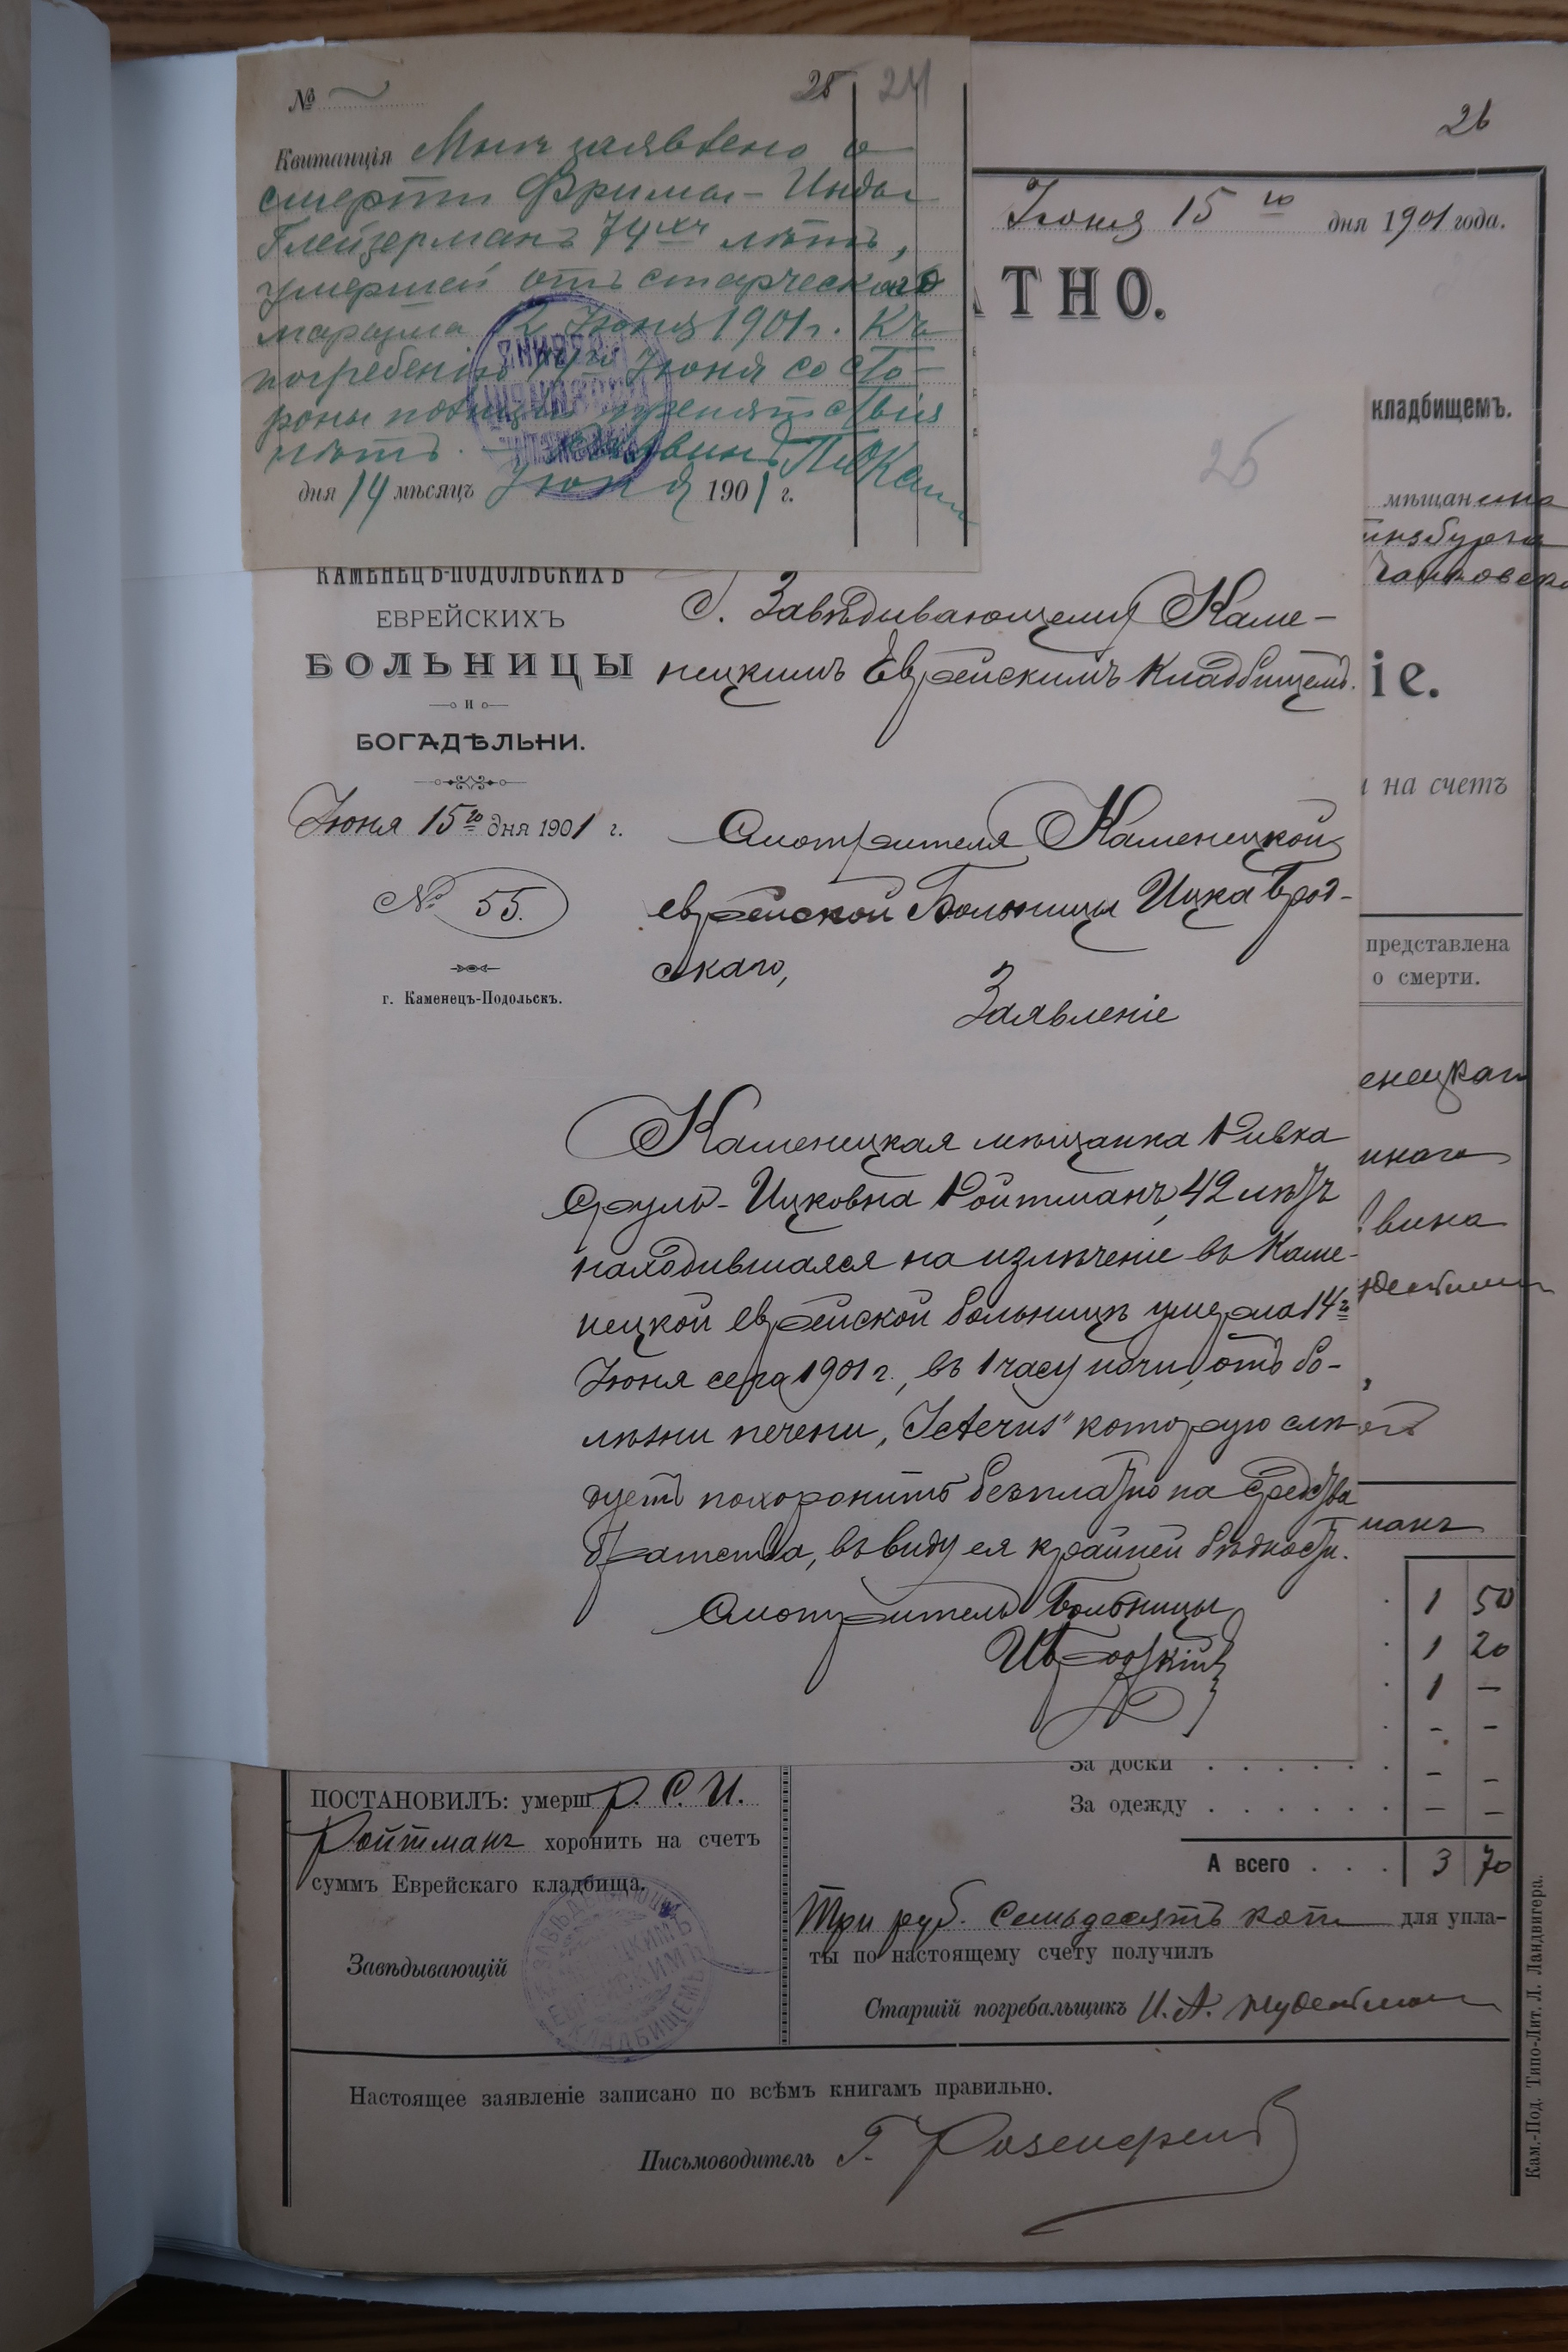 №
28 24
Квитанція Мнѣ заявлено о
смерти Фримы-Инды
Глейзерманъ 74хъ лѣтъ,
умершей отъ старческаго
маразма 2 Іюня 1901 г. Къ
погребенію 14го Іюня со сто-
роны полиціи препятствія
нѣтъ.
дня 14 мѣсяцъ Іюня 1901 г.
26
Іюня 15го дня 1901 года.
АТНО.
кладбищемъ.
25
мѣщанина
инзбурга
іе.
на счетъ
представлена
о смерти.
енецкаго
инаго
вина
КАМЕНЕЦЪ-ПОДОЛЬСКИХЪ
ЕВРЕЙСКИХЪ
БОЛЬНИЦЫ
И
БОГАДѢЛЬНИ.
Іюня 15го дня 1901 г.
№ 55.
г. Каменецъ-Подольскъ.
Г. Завѣдывающему Каме-
нецкимъ Еврейскимъ Кладбищемъ.
Смотрителя Каменецкой
еврейской Больницы Ицка Брод-
скаго,
Заявленіе
Каменецкая мѣщанка Ривка
Сруль-Ицковна Ройтманъ, 42 лѣтъ
находившаяся на излѣченіе въ Каме-
нецкой еврейской больницѣ умерла 14го
Іюня сего 1901 г., въ 1 часу ночи, отъ бо-
лѣзни печени, „Icterus" которую слѣ-
дуетъ похоронить безплатно на средства
братства, въ виду ея крайней бѣдности.
Смотритель Больницы
И Бродскій
манъ
1 50
1 20
1 —
- -
За доски . . . . . . - -
За одежду . . . . . . — —
А всего . . . 3 70
ПОСТАНОВИЛЪ: умерш Р. С. И.
Ройтманъ хоронить на счетъ
суммъ Еврейскаго кладбища.
Завѣдывающій
Три руб. семьдесятъ коп для упла-
ты по настоящему счету получилъ
Старшій погребальщикъ И. А.
Настоящее заявленіе записано по всѣмъ книгамъ правильно.
Письмоводитель Г.
Кам.-Под. Типо-Лит. Л. Ландвигера.